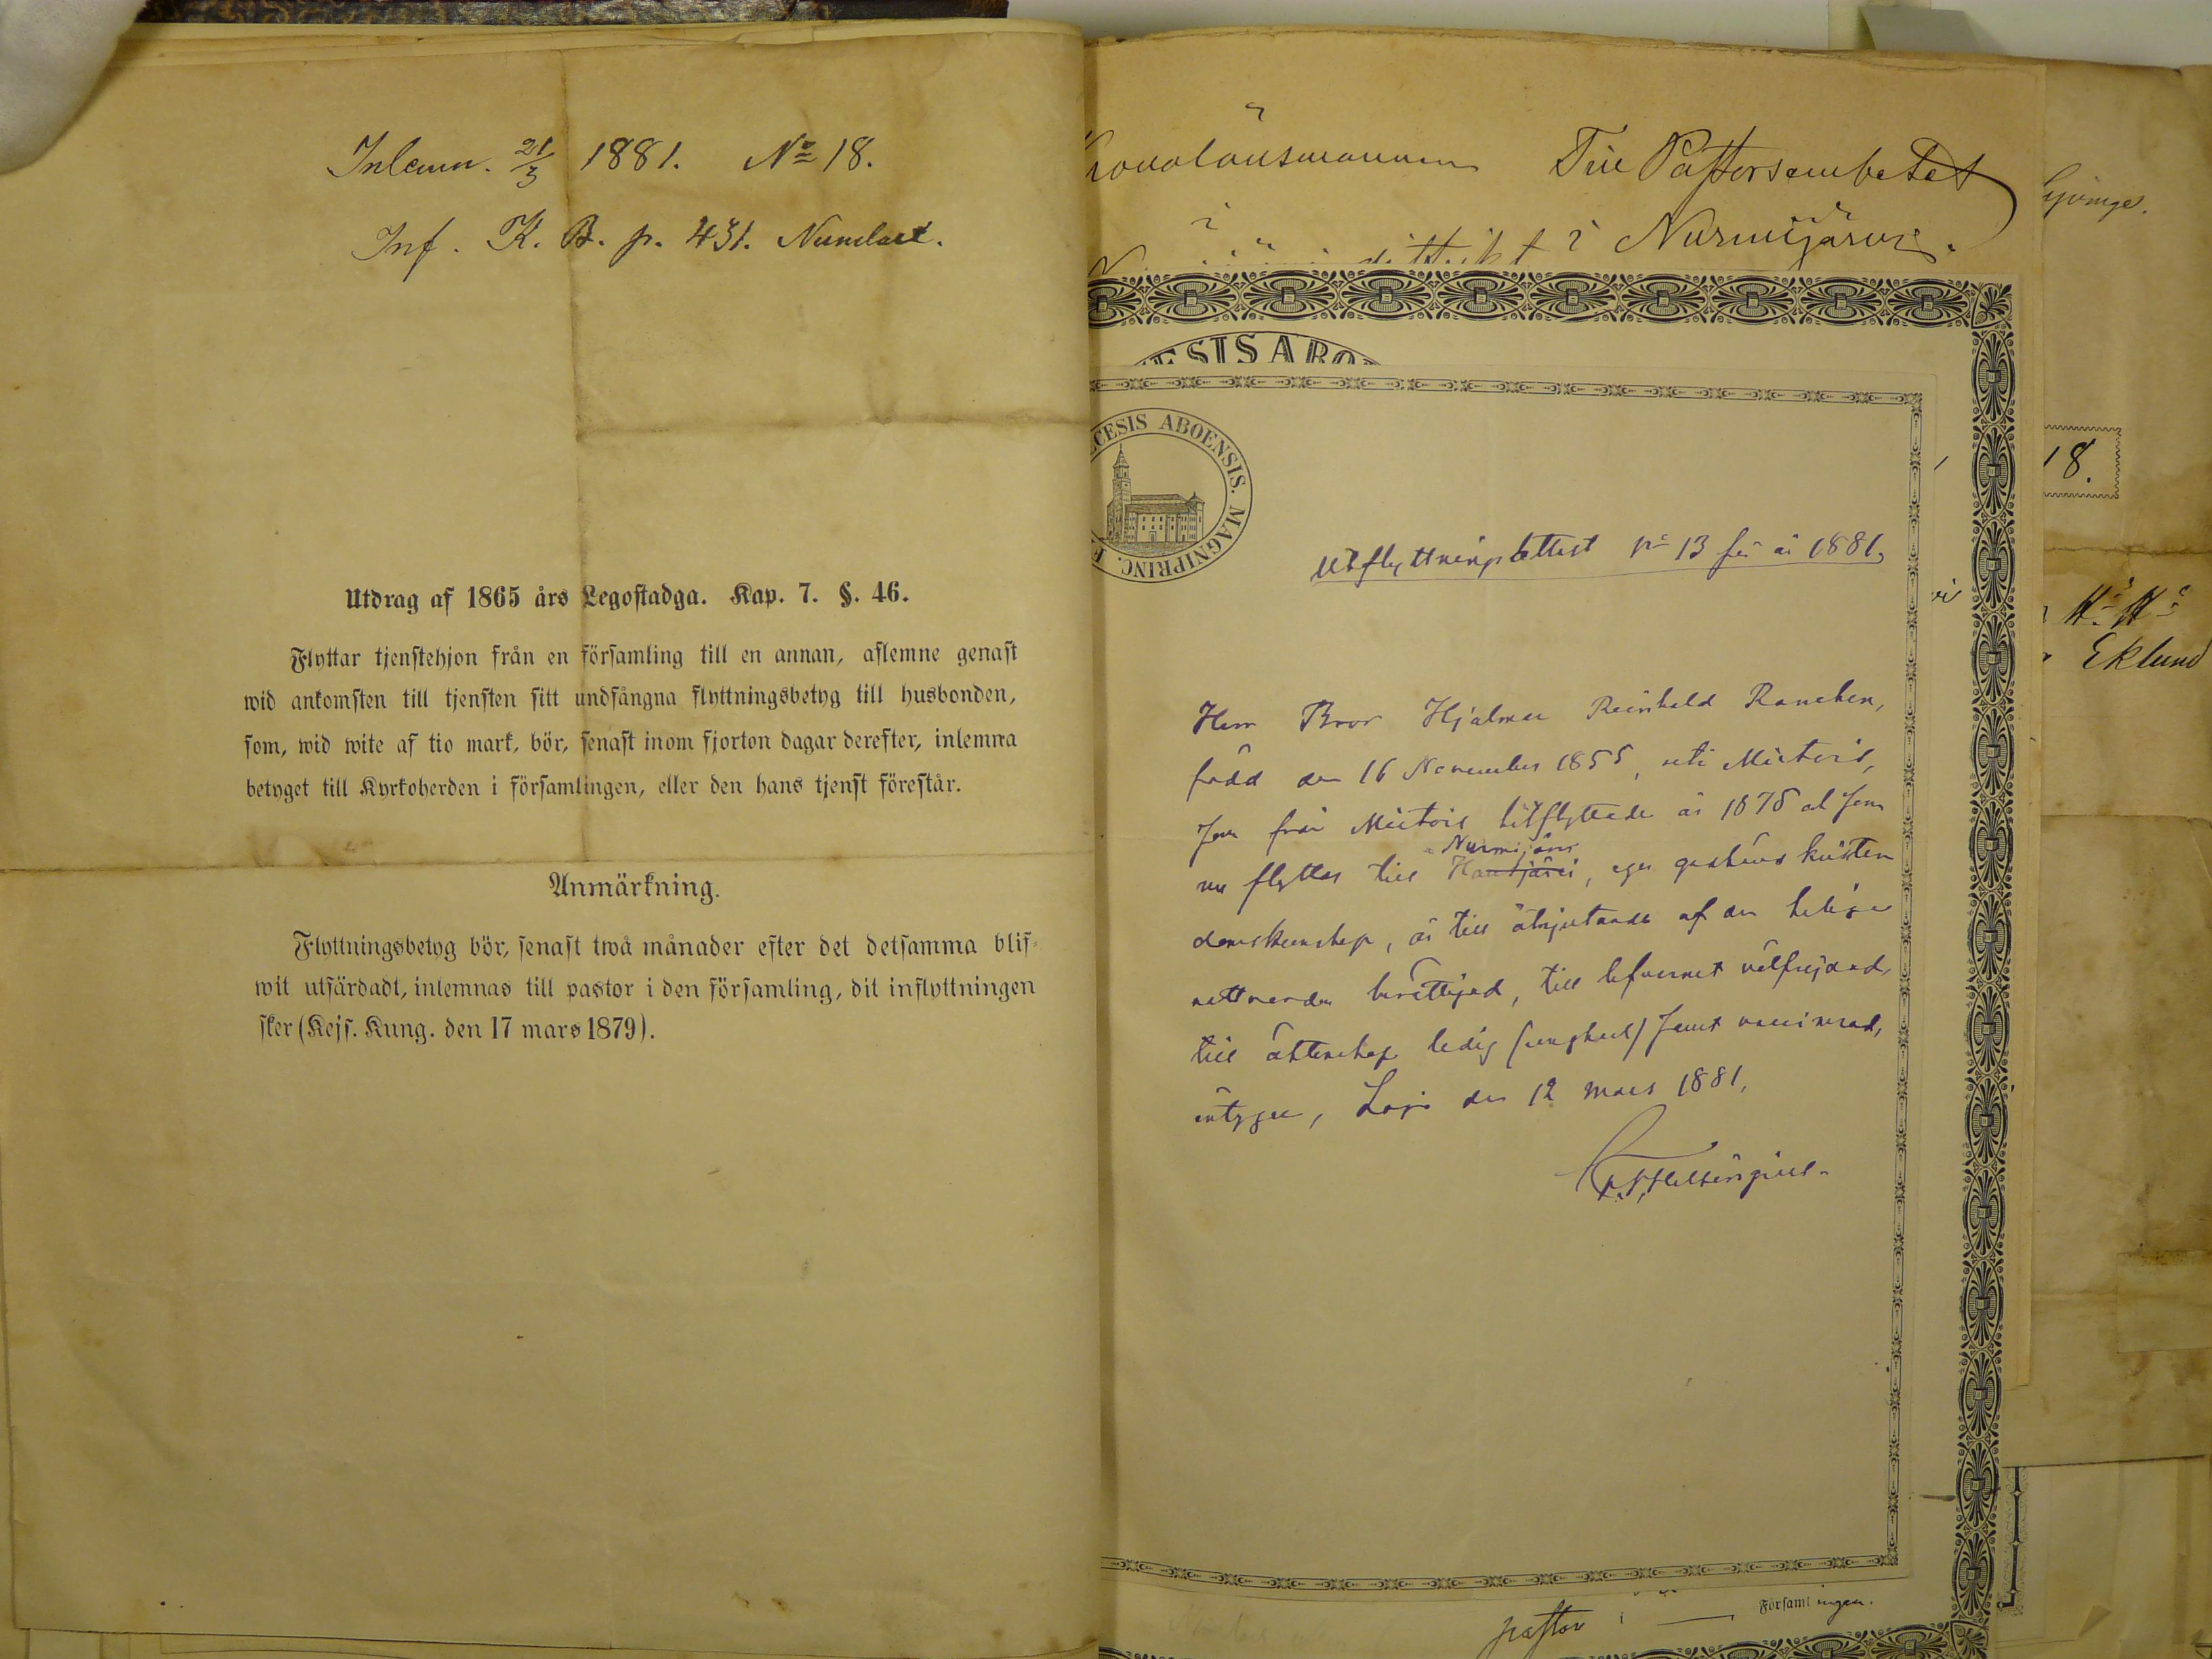 Inlemn. 21/3 1881. No 18.
Inf. K. B. p. 431. Numlax.
Utdrag af 1865 års Legostadga. Kap. 7. §. 46.
Flyttar tjenstehjon från en församling till en annan, aflemne genast
wid ankomsten till tjensten sitt undfångna flyttningsbetyg till husbonden,
som, wid wite af tio mark, bör, senast inom fjorton dagar derefter, inlemna
betyget till Kyrkoherden i församlingen, eller den hans tjenst förestår.
Anmärkning.
Flyttningsbetyg bör, senast twå månader efter det detsamma blif-
wit utfärdadt, inlemnas till pastor i den församling, dit inflyttningen
sker (Kejs. Kung. den 17 mars 1879).
Till Pastorsembetet
i Nurmijärvi.
ESIS ABO
CESIS ABOENSIS. MAGNIPRINC. F
Utflyttningsattest No 13 för år 1881,
Herr Bror Hjalmar Reinhold
född den 16 November 1855, uti
som från tillflyttade år 1878 och som
Nurmijärvi
nu flyttar till Hausjärvi, eger godkänd kristen
domskunskap, är till åtnjutande af den heliga
nattvarden berättigad, till lefvernet välfrejdad,
till äktenskap ledig (ungkarl) samt vaccinerad,
intygar, Lojo den 12 mars 1881.
18.
Eklund
pastor i Församlingen.